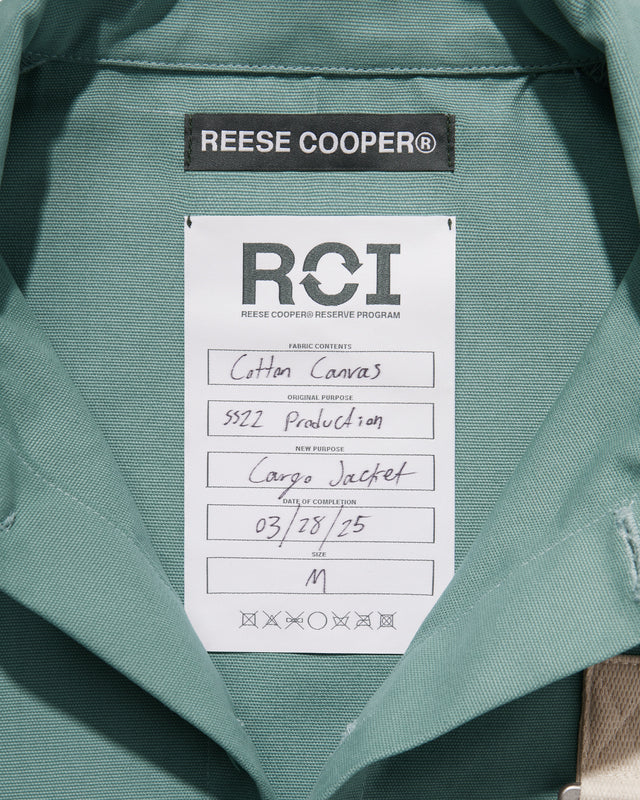 REESE COOPER®
RCI
REESE COOPER® RESERVE PROGRAM
FABRIC CONTENTS
Cotton Canvas
ORIGINAL PURPOSE
SS22 Production
NEW PURPOSE
Cargo Jacket
DATE OF COMPLETION
03/28/25
SIZE
M